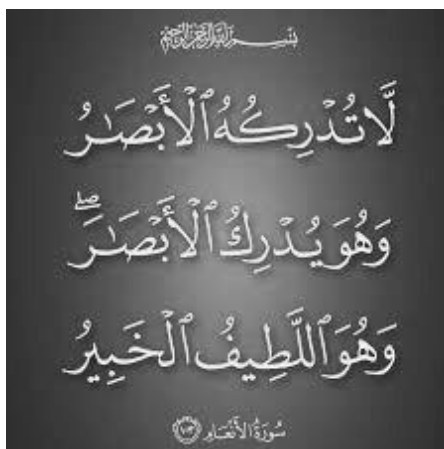 بسم الله الرحمن الرحيم
لَّا تُدْرِكُهُ ٱلْأَبْصَـٰرُ
وَهُوَ يُدْرِكُ ٱلْأَبْصَـٰرَ ۖ
وَهُوَ ٱللَّطِيفُ ٱلْخَبِيرُ
سُورَةُ الأَنْعَام ١٠٣